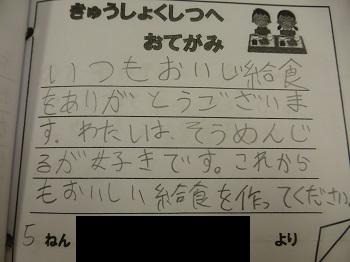 きゅうしょくしつへ
おてがみ
いつもおいし給食
をありがとうございま
す。わたしは、そうめんじ
るが好きです。これから
もおいしい給食を作ってください。
5ねん より